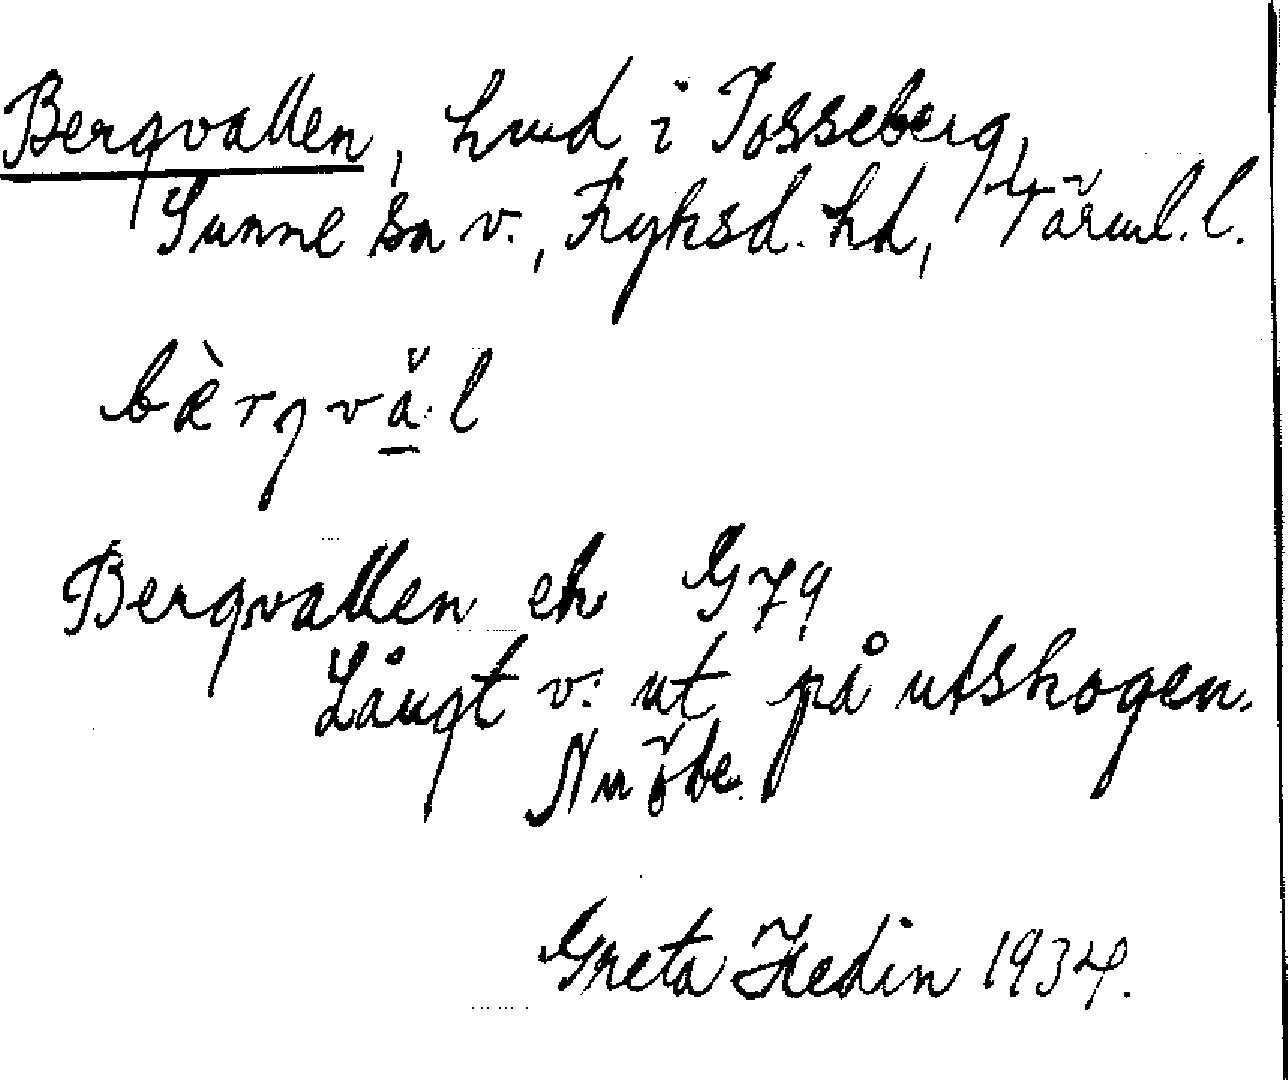 Bergvallen, hmd i Tosseberg,
Sunne sn v., Fryksd. hd, Värml. l.
bèrgvă̱·l
Bergvallen ek G79
Långt v. ut på utskogen.
Nu öde.
Greta Hedin 1934.